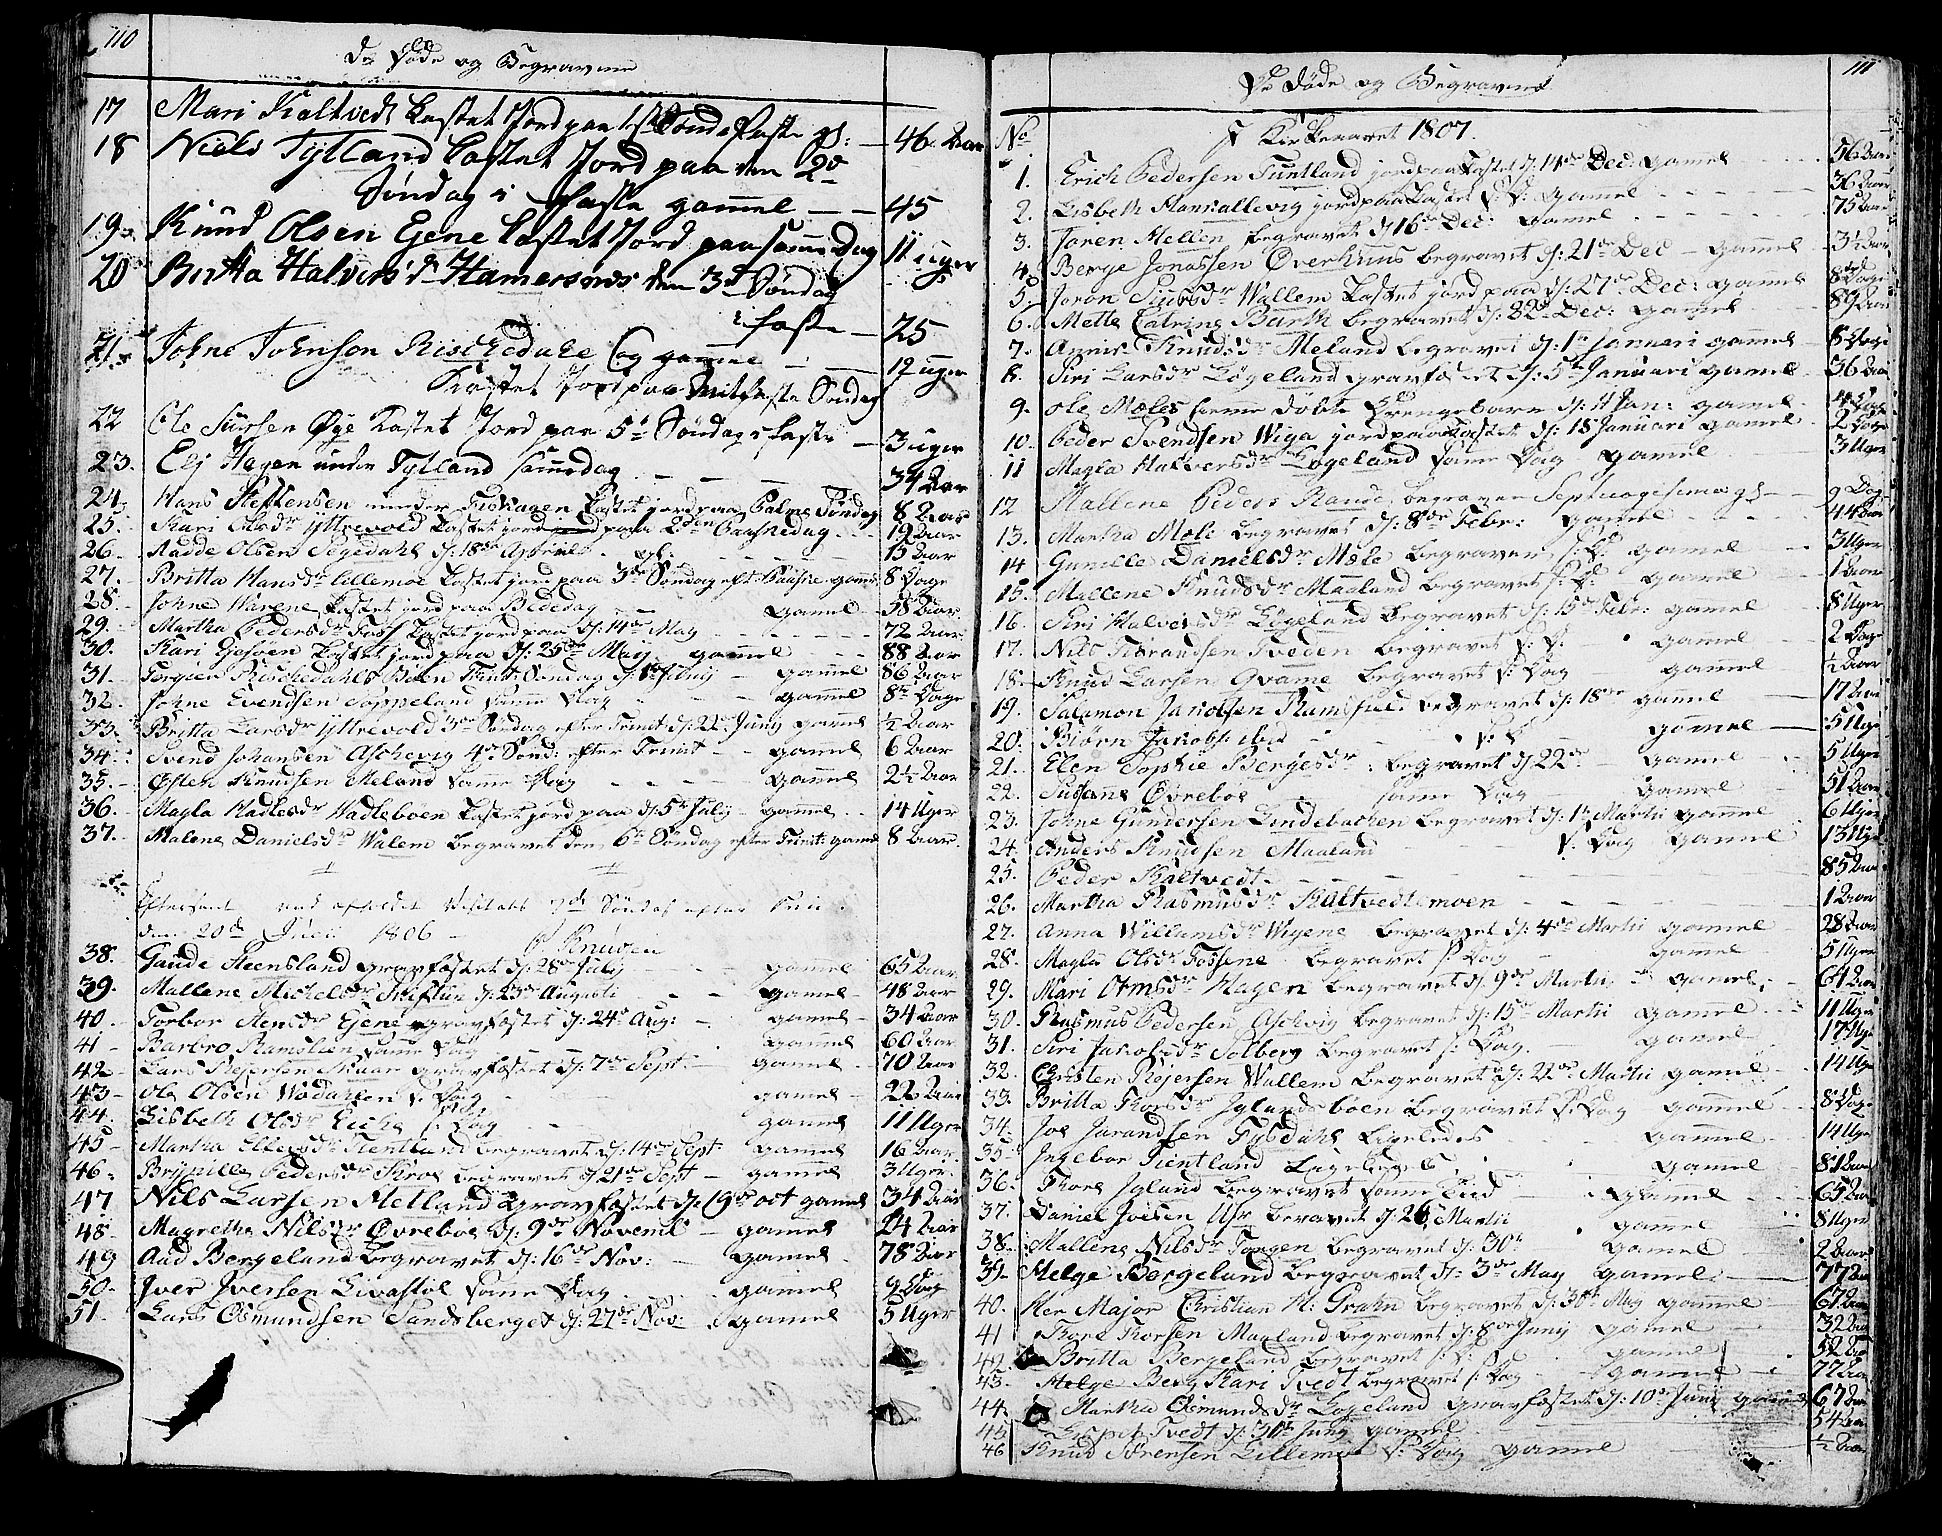 110
De Døde og Begravne
17 Mari Kaltvedt kastet Jord paa 1ste Sønd i Faste gl: 46 Aar
18 Niels Tytland kastet Jord paa den 2de
Søndag i Faste gamel 45
19 Knud Olsen Eene kastet Jord paa samme dag 11 uger
20 Britta Halvorsdr Hamersnes den 3de Søndag
i Faste 25
21 Johne Johnson Rischedahl gamel 12 uger
kastet Jord paa Mitfaste Søndag
22 Ole Siursen Øye kastet Jord paa 5te Søndag i Faste 3 uger
23. Elj Hagen under Tytland samedag 34 Aar
24. Hans Steffensen under Fiskaaen kastet jord paa Palme Søndag 8 Aar
25. Kari Olsdr Yttrevold kastet jord paa 2den Paaskedag 19 Aar
26. Aadde Olsen Segedahl d: 18de Aprilis gl. 15 Aar
27. Britta Hansdr Lillemoe kastet jord paa 3de Søndag eft: Paaske gamel 8 Dage
28. Johne Warene kastet jord paa Bededag gamel 58 Aar
29. Martha Pedersdr Foss kastet jord paa d: 14de May 72 Aar
30. Kari Gosøen kastet jord paa d: 25de Maij gamel 88 Aar
31. Torgier Rischedahls Barn Trinit: Søndag d: 1te Junij gamel 86 Aar
32. Johne Evendsen Toppeland samme Dag gamel 8te Dage
33. Britta Larsdr Yttrevold 3de Søndag efter Trinit d: 22de Junij gamel ½ Aar
34. Svend Johansen Aschevig 4de Sønd: efter Trinit gamel 6 Aar
35. Østen Knudsen Meland samme Dag gamel 2½ Aar
36. Magla Hadlesdr Hadleboen kastet jord paa d: 5te July gamel 14 Uger
37. Malene Danielsdr Walem begravet den 6te Søndag efter Trinit: gamel 8 Aar
Efterseet ved afholdt Visitats 7de Søndag efter Trin:
den 20de Juli 1806
38. Gaude Steensland gravfæstet d: 28de July gamel 65 Aar
39. Mallene Michelsdr Triften d: 23de Augusti gamel 48 Aar
40. Torbor Stensdr Eiene gravfæstet d: 24de Aug: gamel 34 Aar
41 Barbro Ramslien samme Dag gamel 60 Aar
42 Lars Reiersen Skaar gravfæstet d: 7de Sept. gamel 70 Aar
43 Ole Olsen Wodahlen s: Dag gamel 22 Aar
44. Lisbeth Olsdr Eiche s: Dag gamel 11 Uger
45 Martha Ellevsdr Tientland begravet d: 14de Sept gamel 16 Aar
46. Birgille Pedersdr Skroe begravet d 21de Sept gamel 3 Uger
47 Nils Larsen Helland gravfæstet d: 19de oct gamel 34 Aar
48. Magretha Nilsdr Øvreboe d: 9de Novemb gamel 24 Aar
49 Aad Bergeland begravet d: 16de Nov: gamel 78 Aar
50. Iver Iversen Livastøl samme Dag gamel 9 Dag
51. Lars Osmundsen Sandsberget d: 27de Nov: gamel 5 Uger
111
De Døde og Begravne
No I Kirkeaaret 1807.
1. Erich Pedersen Funtland jordpaakastet d: 14de Dec: gamel 56 Aar
2. Lisbeth Stankallevig jordpaakastet s: D: gamel 36 Aar
3. Toren Mellen begravet d 16de Dec: gamel 75 Aar
4. Berge Jonassen Øverhuus begravet d: 21de Dec gamel 3½ Aar
5. Joron Siursdr Wallem kastet jord paa d: 27de Dec: gamel 8te Dage
6. Mette Catrine Barth begravet d: 28de Dec: gamel 89 Aar
7. Annie Knudsdr Meland begravet d: 1te Januari gamel 8 Dage
8. Siri Larsdr Løgeland gravfæstet d: 5te Januari gamel 36 Aar
9. Ole Moles hieme døbte Drengebarn d: 11 Jan: gamel
10. Peder Svendsen Wiga jordpaakastet d: 18 Januari gamel 2 Dage
11 Magla Halversdr Løgeland same Dag gamel 3 Uger
12 Mallene Peders Rande begraven Septuagesima gl 9 Dag
13. Martha Mæle begravet d: 8de Febr: gamel 44 Aar
14 Gunille Danielsdr Mæle begraven s: D: gamel 3 Uger
15. Mallene Knudsdr Maaland begravet s: D: gamel 1 Aar
16. Siri Halversdr Løgeland begravet d: 15de Febr: gamel 8 Uger
17. Nils Tostandsen Tveden begravet s: D: gamel 2 Dage
18. Knud Larsen Qvame begravet s: Dag gamel ½ Aar
19. Salamon Jacobsen Ramsfield begravet d: 18de gamel 17 Aar
20. Biørn Jakobs: ibid s: D gamel 5 Uger
21. Elen Sophie Bergesdr begravet d 22de gamel 5 Uger
22. Susanne Øvreboe same Dag gamel 51 Aar
23. Johne Gundersen Lindebachen begravet d: 1te Martii gamel 6 Uger
24. Anders Knudsen Maaland s: Dag gamel 13 Uger
25. Peder Kaltvedt 85 Aar
26. Martha Rasmusdr Kaltvedtemoen 1 Aar
27. Anna Willumsdr Wigene begravet d: 4de Martii gamel 28 Aar
28. Magla Olsdr Fossene begravet s: Dag gamel 5 Uger
29. Mari Otmsdr Hagen begravet d: 9de Martii gamel 61 Aar
30. Rasmus Pedersen Aschvig begravet d: 15de Martii gamel 11 Uger
31. Siri Jakobsdr Solberg begravet s: Dag gamel 17 Uger
32. Christen Reiersen Wallem begravet d: 22de Martii gamel 14 Uger
33. Britta Thorsdr Iglandsboen begravet s: Dag gamel 8 Dage
34. Joe Jarandsen Fysdahl ligeledes gamel 14 Uger
35. Ingebor Tientland ligeledes gamel 81 Aar
36. Thore Igland begravet samme Tiid gamel 65 Aar
37. Daniel Joesen Ur beravet d: 26 Martii gamel 8 Uger
38. Mallene Nilsdr Tangen begravet d: 30te gamel 2 Aar
39. Helge Bergeland begravet d: 3de May gamel 77 Aar
40. Her Major Christian H: Grahn begravet d: 30te May gamel 67 Aar
41 Thore Thorsen Maaland begravet d: 8de Junij gamel 32 Aar
42 Britta Bergeland begravet s: D: gamel 52 Aar
43. Helge Berg Kari Tvedt begravet s: Dag gamel 77 Aar
44. Martha Osmundsdr Løgeland gravfæstet d: 10de Junij gamel 67 Aar
45 Lisbet Tvedt d: 30te Junij gamel 54 Aar
46 Knud Sørensen Lillemoe s: Dag gamel ½ Aar